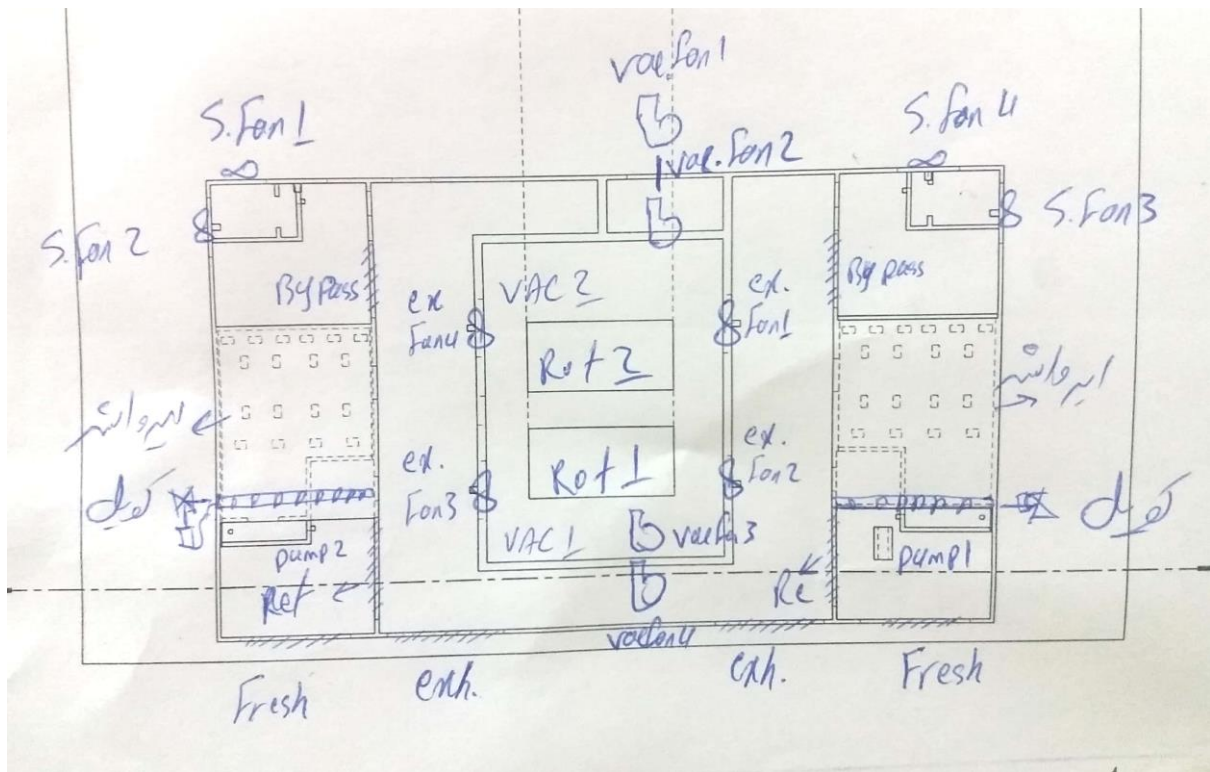 vac.fan1
S.fan1
S.fan4
vac.fan2
S.fan2
S.fan3
By pass
By pass
VAC2
ex
fan4
ex.
fan1
Rot2
ایرواشر
ایرواشر
ex.
fan3
ex.
fan2
Rot1
VAC1
vacfan3
pump2
pump1
Ret
Re
vacfan4
Fresh
exh.
exh.
Fresh